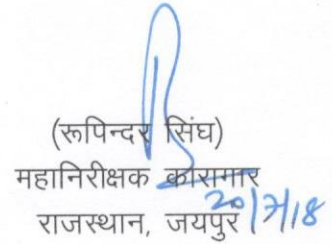 (रूपिन्दर सिंघ)
महानिरीक्षक कारागार
राजस्थान, जयपुर
20/7/18